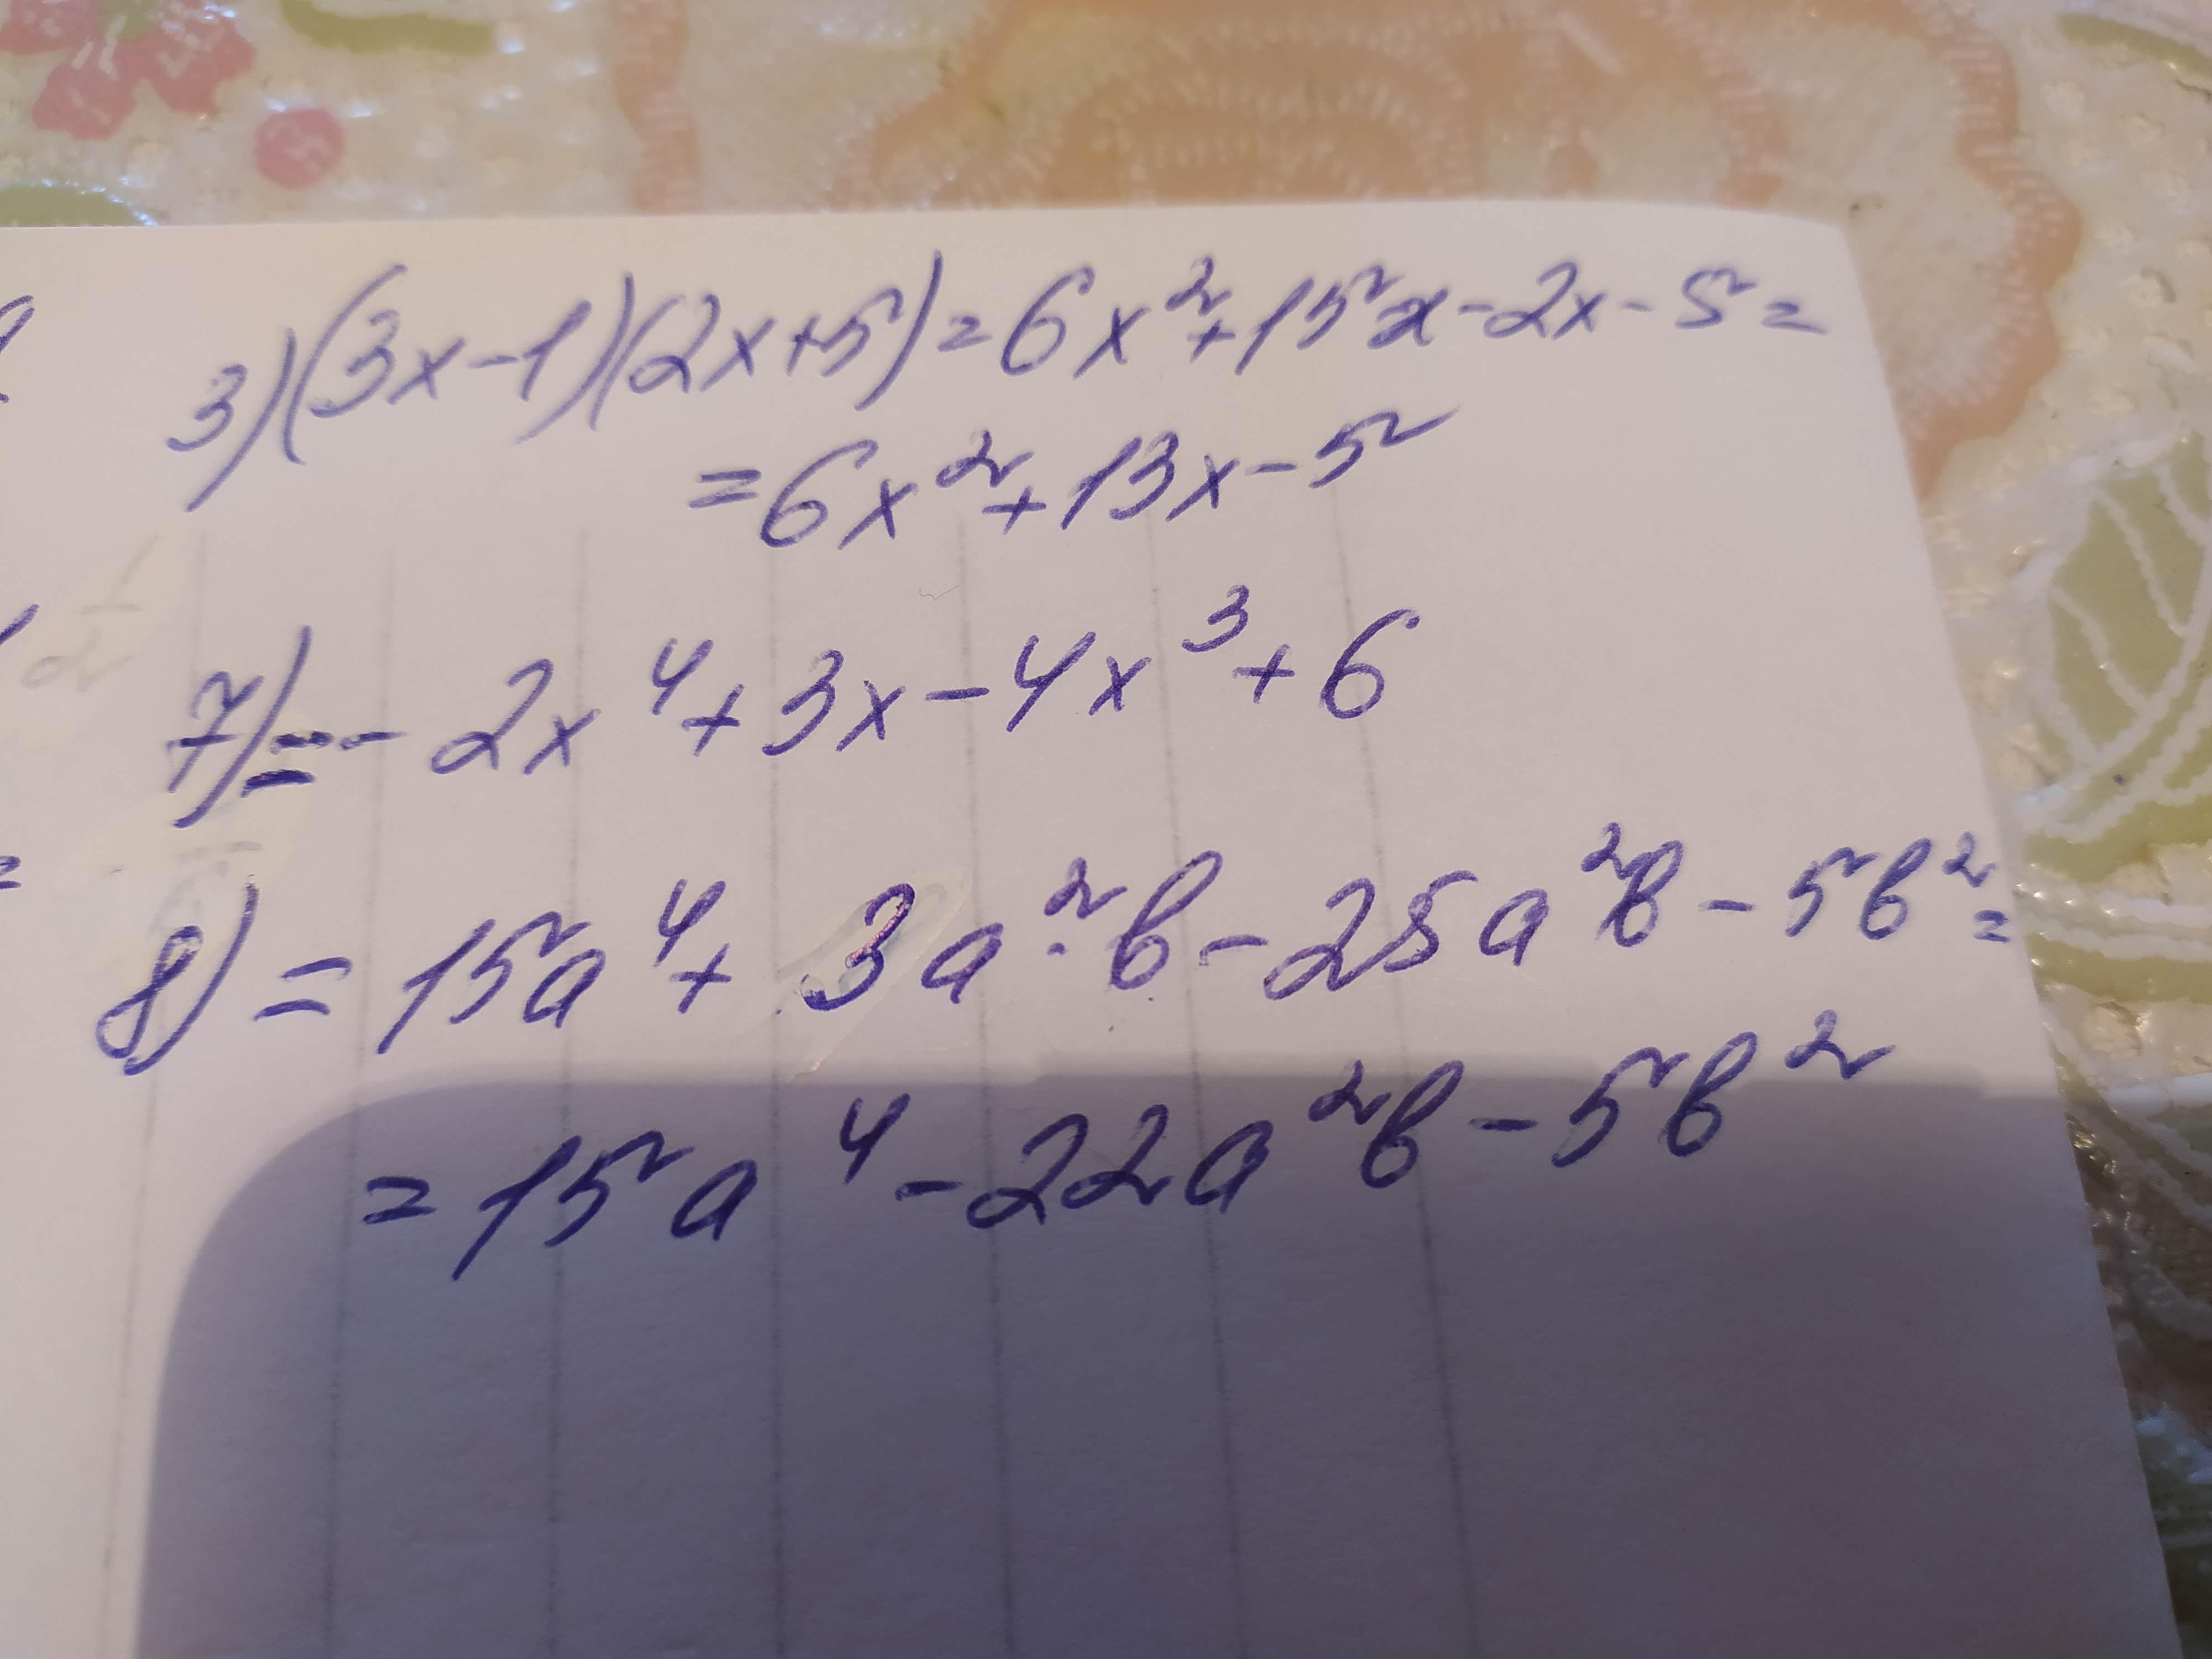 3) (3x-1)(2x+5)=6x²+15x-2x-5=
=6x²+13x-5
7) = -2x⁴+3x-4x³+6
8) = 15a⁴+3a²·b-25a²b-5b²=
=15a⁴-22a²b-5b²